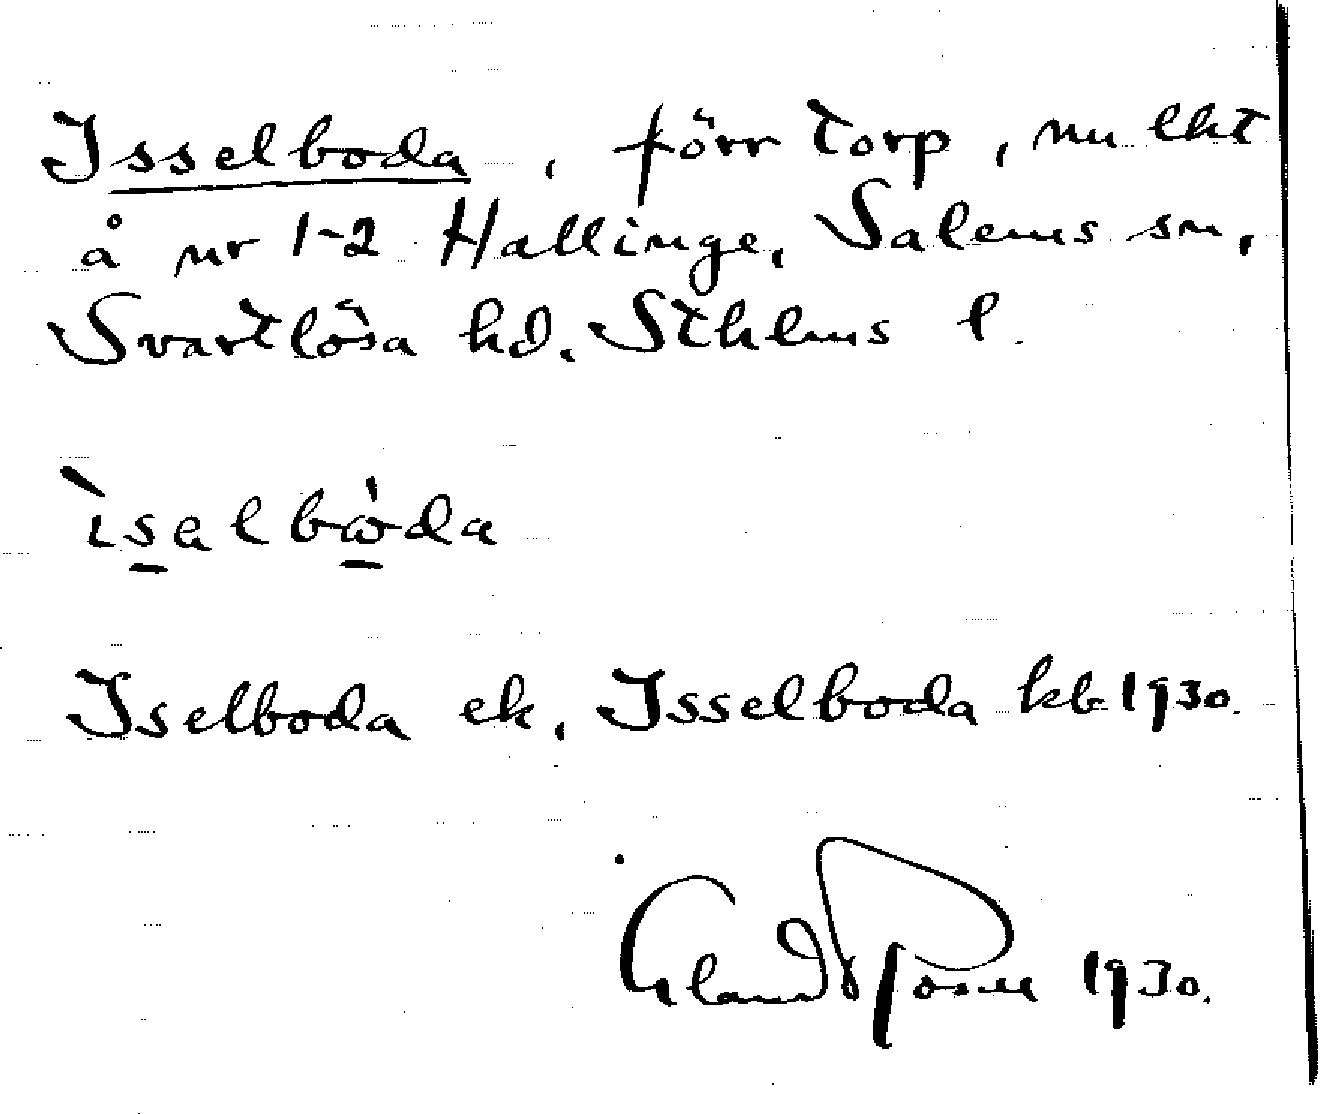 Isselboda, förr torp, nu lht
å nr 1-2 Hallinge, Salems sn,
Svartlösa hd. Sthlms l.
ìsalbω̇da
Iselboda ek, Isselboda kb 1930.
1930.